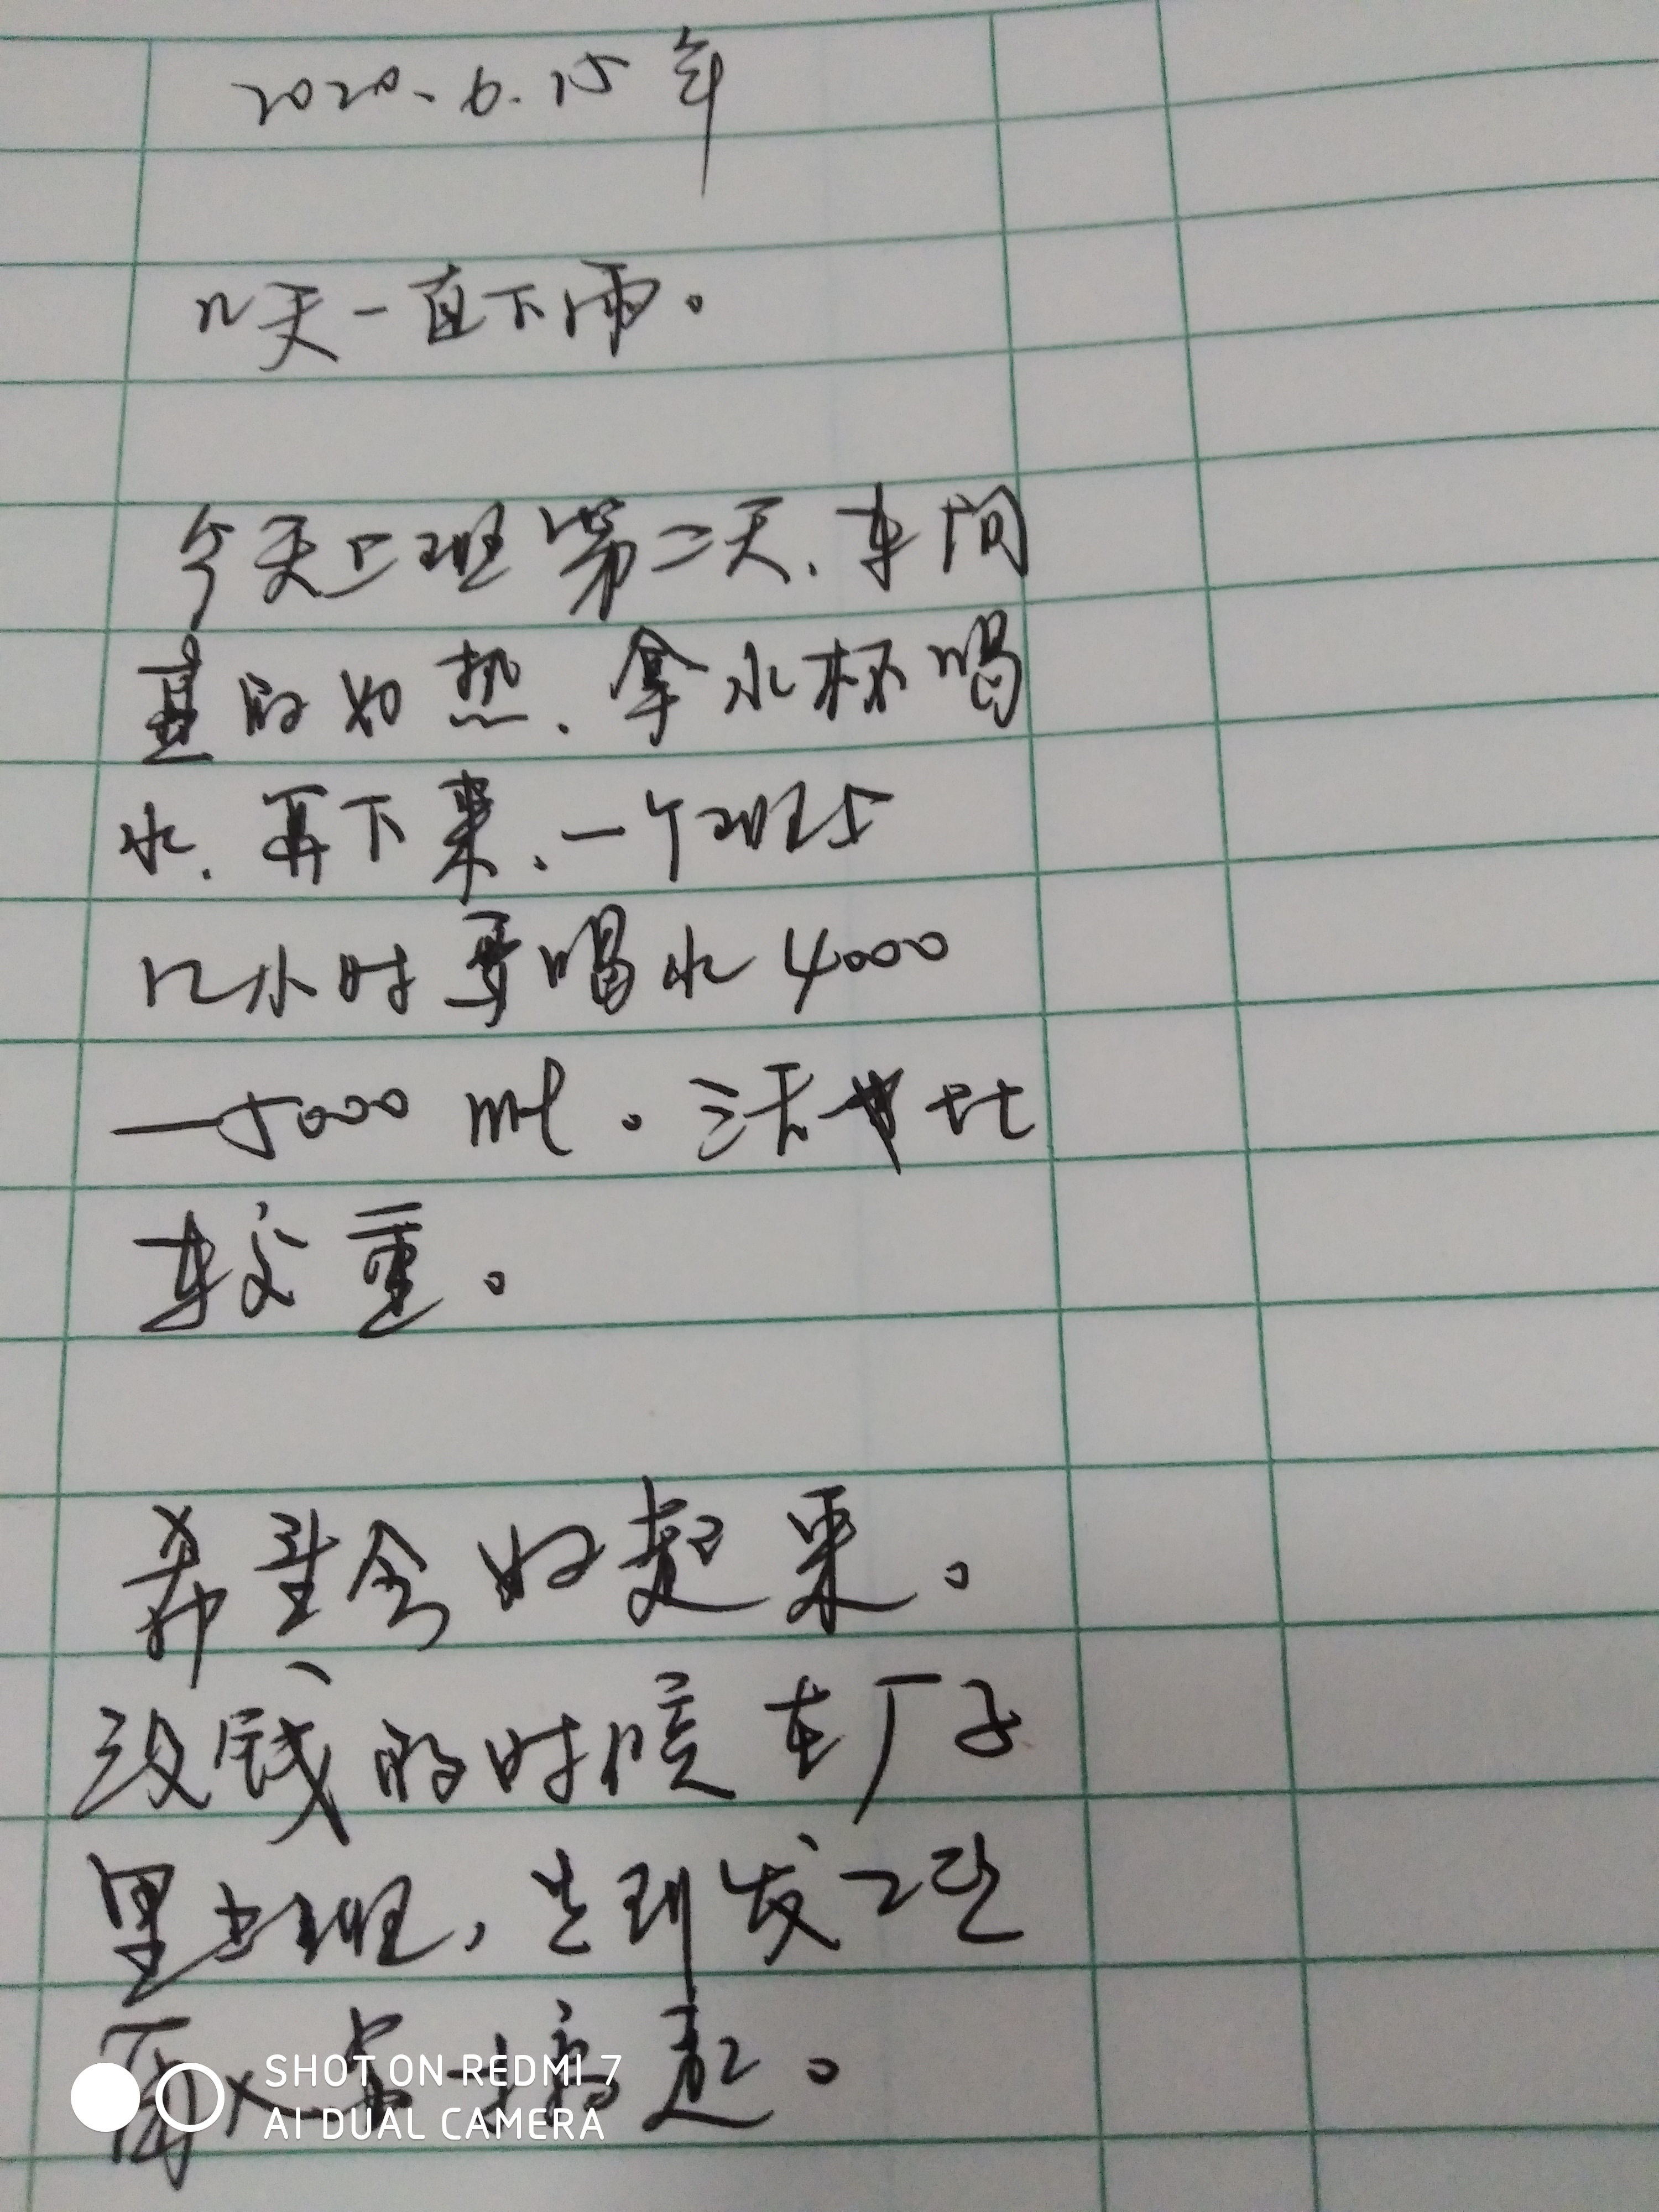 2020.6.15年
几天一直下雨。
今天上班第二天.车间
真的好热.拿水杯喝
水.再下来.一个班上
12小时要喝水4000
—5000ml。活 比
较重。
希望会好起来。
没钱的时候在厂子
里上班,
SHOT ON REDMI 7
AI DUAL CAMERA